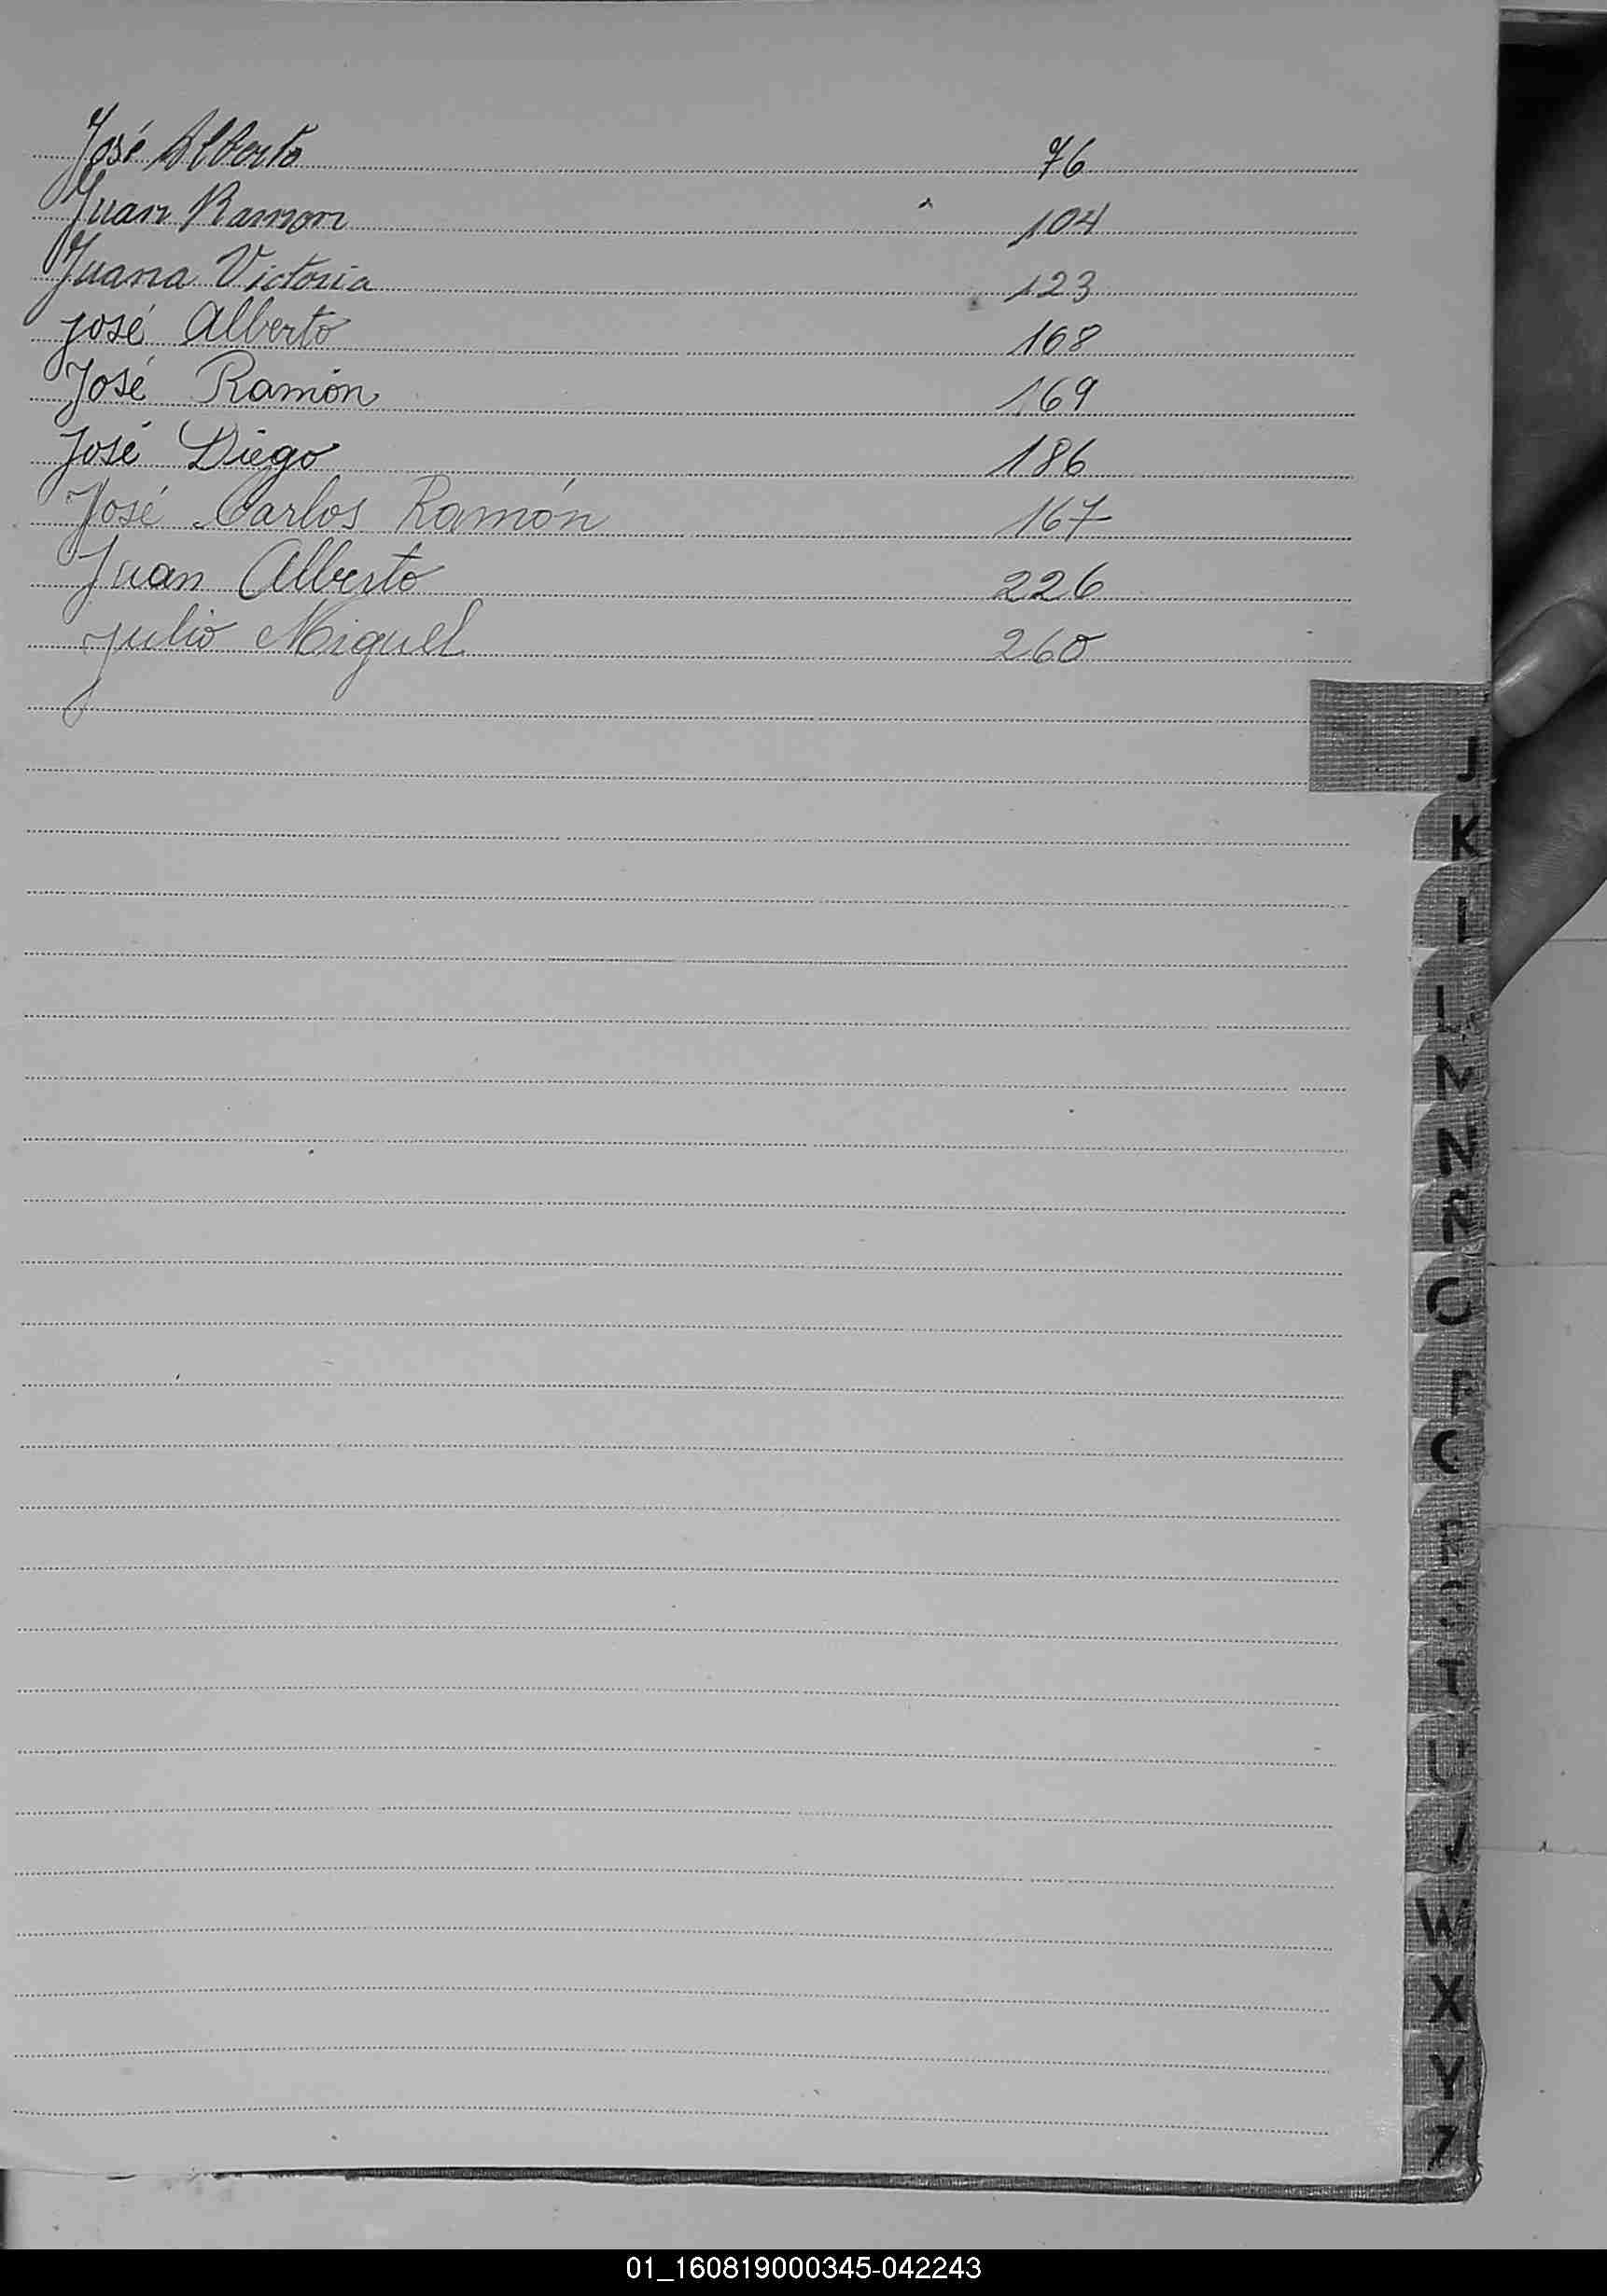 José Alberto 76
Juan Ramon 104
Juana Victoria 123
José Alberto 168
José Ramón 169
José Diego 186
José Carlos Ramón 167
Juan Alberto 226
Julio Miguel 260
J
K
L
N
Ñ
C
T
U
W
X
Y
01_160819000345-042243